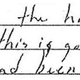 the ha
this is go
ad been